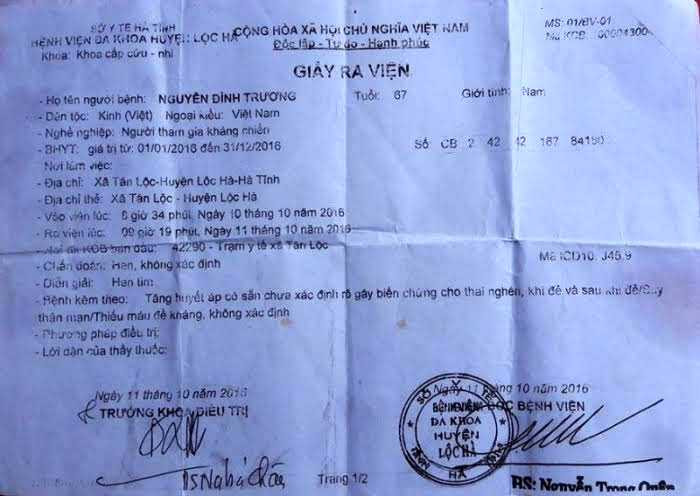 SỞ Y TẾ HÀ TĨNH
BỆNH VIỆN ĐA KHOA HUYỆN LỘC HÀ
Khoa: Khoa cấp cứu - nhi
CỘNG HÒA XÃ HỘI CHỦ NGHĨA VIỆT NAM
Độc lập - Tự do - Hạnh phúc
MS: 01/BV-01
GIẤY RA VIỆN
- Họ tên người bệnh: NGUYỄN ĐÌNH TRƯƠNG Tuổi: 67 Giới tính: Nam
- Dân tộc: Kinh (Việt) Ngoại kiều: Việt Nam
- Nghề nghiệp: Người tham gia kháng chiến
- BHYT: giá trị từ: 01/01/2016 đến 31/12/2016 Số: CB 2 42 42 187
Nơi làm việc:
- Địa chỉ: Xã Tân Lộc-Huyện Lộc Hà-Hà Tĩnh
- Địa chỉ thẻ: Xã Tân Lộc - Huyện Lộc Hà
- Vào viện lúc: giờ 34 phút, Ngày 10 tháng 10 năm 2016
- Ra viện lúc: giờ 19 phút, Ngày 11 tháng 10 năm 2016
- KCB ban đầu: 42290 - Trạm y tế xã Tân Lộc
- Chẩn đoán: Hen, không xác định Mã ICD10: J45.9
- Diễn giải: Hen tim
- Bệnh kèm theo: Tăng huyết áp có sẵn chưa xác định rõ gây biến chứng cho thai nghén, khi đẻ và sau khi đẻ/Suy
thận mạn/Thiếu máu đề kháng, không xác định
- Phương pháp điều trị:
- Lời dặn của thầy thuốc:
Ngày 11 tháng 10 năm 2016
TRƯỞNG KHOA ĐIỀU TRỊ
Ngày 11 tháng 10 năm 2016
ĐỐC BỆNH VIỆN
SỞ Y TẾ
BỆNH VIỆN
ĐA KHOA
HUYỆN
LỘC HÀ
Trang 1/2
BS: Nguyễn Trọng